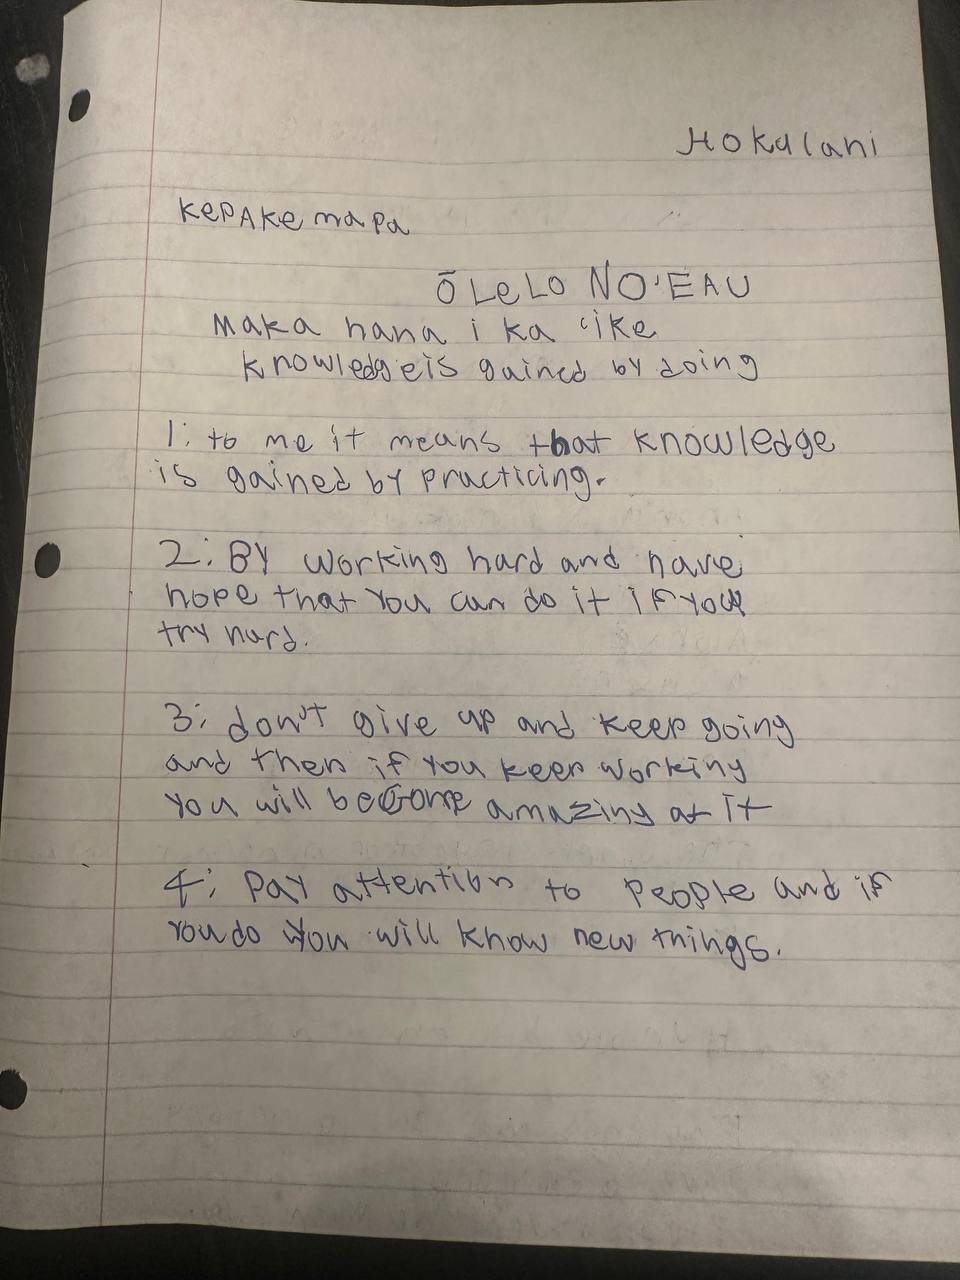 Hokulani
KePAKemapa
ŌLeLO NO'EAU
Maka hana i ka 'ike
knowledgeis gained by doing
1: to me it means that knowledge
is gained by practicing.
2: BY working hard and have
hope that you can do it if you
try hard.
3: don't give up and keep going
and then if you keep working
you will become amazing at it
4: Pay attention to people and if
you do you will know new things.